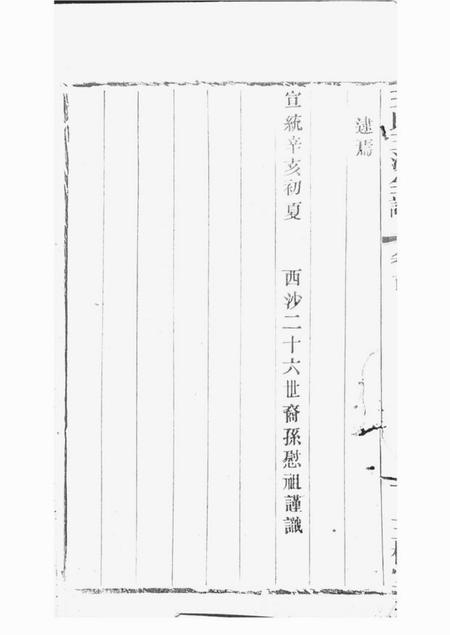 逮焉
宣統辛亥初夏　西沙二十六世裔孫慰祖謹識